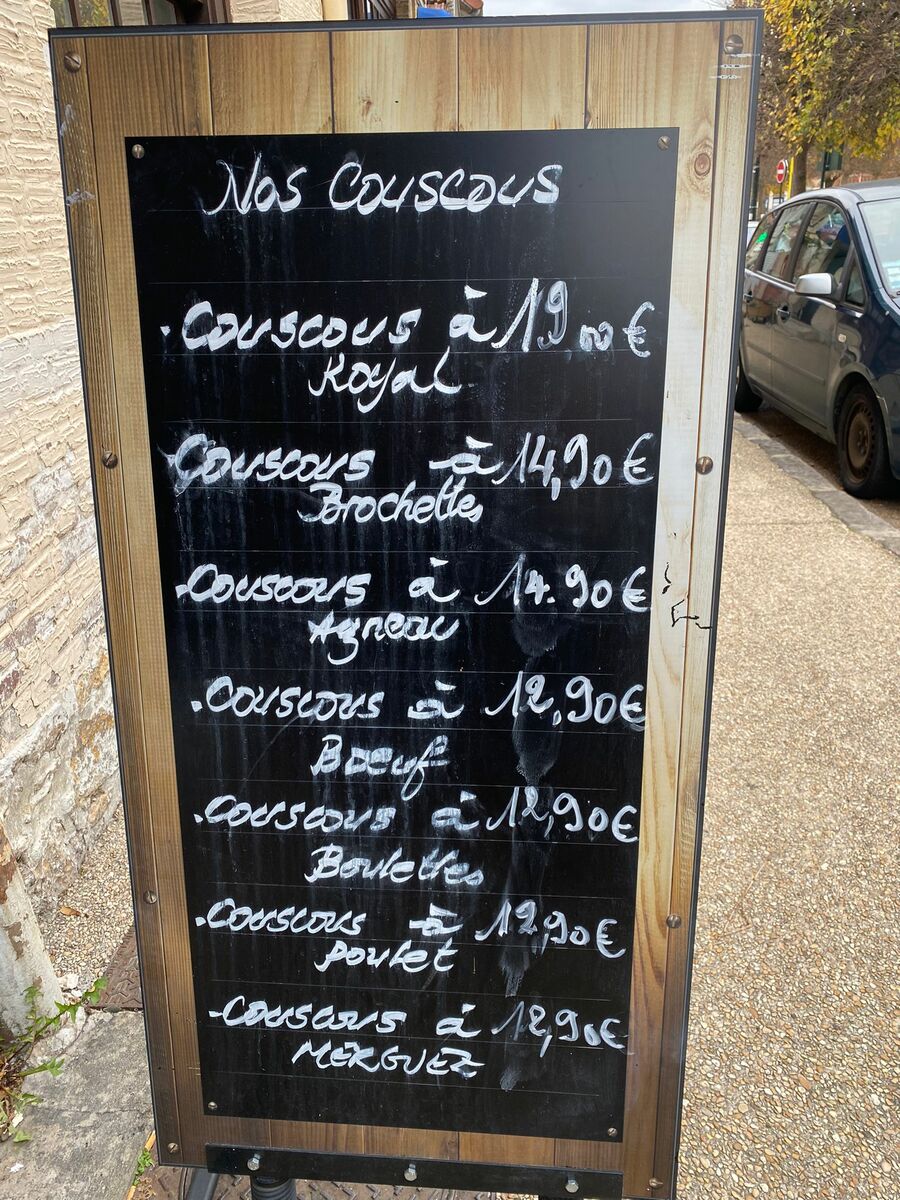 Nos Couscous
.Couscous à 19,00€
Royal
Couscous à 14,90€
Brochettes
.Couscous à 14.90€
Agneau
.Couscous à 12,90€
Bœuf
.Couscous à 12,90€
Boulettes
.Couscous à 12,90€
poulet
-Couscous à 12,90€
MERGUEZ